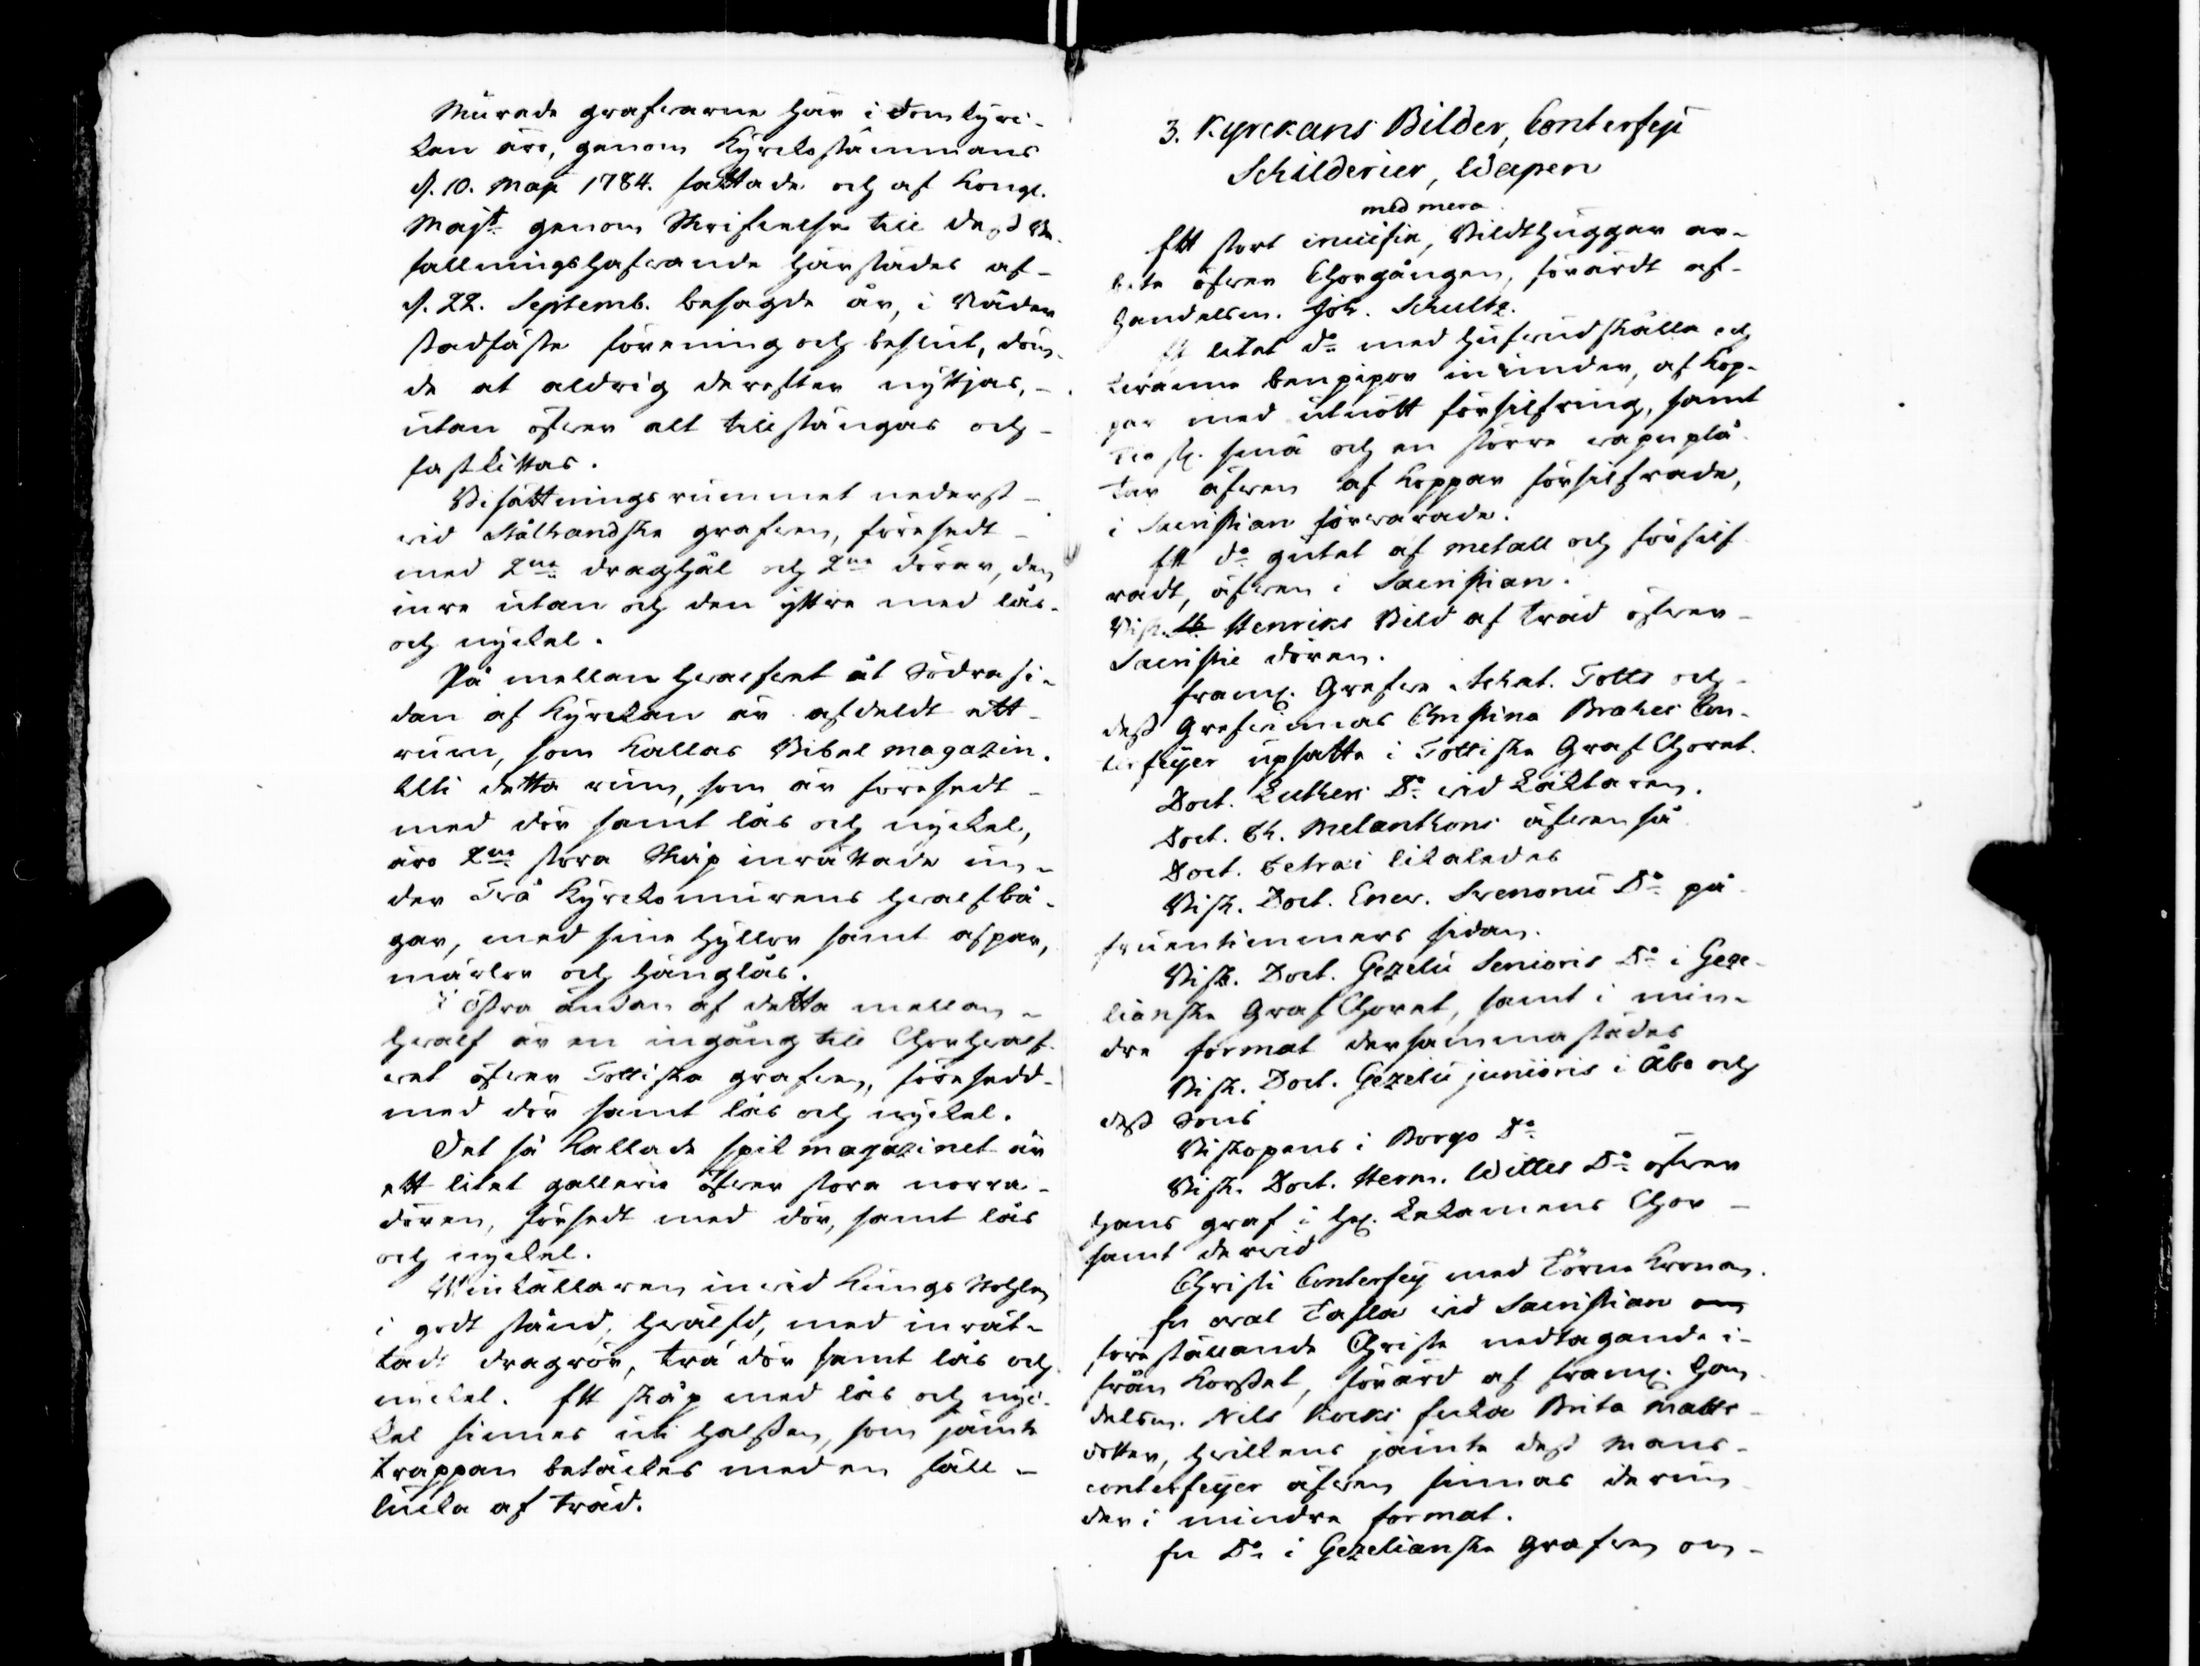 Murade grafvarne här i Domkyrc-
kan äro, genom Kyrckostämmans
d. 10. Maji 1784. fattade och af Kongl.
Maj:t genom Skrifvelse till dess Be-
fallningshafvande härstädes af
d. 22. Septemb. besagde år, i Nåder
stadfäste förening och beslut, döm-
de at aldrig derefter nyttjas, -
utan öfver alt tillstängas och -
fastkittas.
Bisättningsrummet nederst -
vid Stålhandske grafven, försedt -
med 2ne draghål och 2ne dörar, den
inre utan och den yttre med lås -
och nyckel.
På mellan hvalfvet åt Södra si-
dan af Kyrckan är afdeldt ett -
rum, som kallas Bibel magazin.
Uti detta rum, som är försedt -
med dör samt lås och nyckel,
äro 2ne stora Skåp inrättade un-
der Två Kyrckomurens hvalfbå-
gar, med sine hyllor samt aspar,
märlor och hänglås.
I östra ändan af detta mellan -
hvalf är en ingång till Chorhvalf-
vet öfver Tottiska grafven, försedd -
med dör samt lås och nyckel.
Det så kallade spik magazinet är
ett litet gallerie öfver stora norra -
dören, försedt med dör, samt lås
och nyckel.
Winkällaren invid Kungs Stohlen
i godt stånd, hvälfd, med inrät-
tadt dragrör, trä dör samt lås och
nyckel. Ett skåp med lås och nyc-
kel finnes uti halssen, som jämte
trappan betäckes med en fäll -
lucka af träd.
3. Kyrckans Bilder, Conterfeji
Schilderier, Wapen
med mera
Ett stort crucifix, Bildthuggar ar-
bete öfver Chorgången, förärdt af -
Handelsm. Joh. Schultz.
Et litet D:o med hufvudskålla och
tvänne benpipor inunder, af Kop-
par med utnött försilfring, samt
tio st. små och en större vapnplå-
tar äfven af Koppar försilfrade,
i Sacristian förvarade.
Ett D:o gutet af metall och försilf-
radt, äfven i Sacristian.
Bisk. Henriks Bild af träd öfver -
Sacristie dören.
Framl. Grefve Achat. Totts och -
dess Grefvinnas Christina Brahes Con-
terfeyer upsatte i Tottiske Graf Choret.
Doct. Lutheri D:o vid Läktaren.
Doct. Ph. Melanthons äfvenså
Doct. Petræi likaledes
Bisk. Doct. Enev. Svenonii D:o på
fruentimmers sidan.
Bisk. Doct. Gezelii Senioris D:o i Geze-
lianske Graf Choret, samt i min-
dre format dersammastädes
Bisk. Doct. Gezelii junioris i Åbo och
dess Sons
Biskopens i Borgo D:o
Bisk. Doct. Herm. Wittes D:o öfver
hans graf i Hel. Lekamens Chor -
samt dervid
Christi Conterfej med Törne Kronan.
En oval Tafla vid Sacristian
föreställande Christi nedtagande -
från Korsset, förärd af framl. Han-
delsm. Nils Kocks Enka Brita Matts-
dotter, hvilkens jämte dess Mans -
conterfeyer äfven finnas derun-
der i mindre format.
En D:o i Gezelianske grafven om -